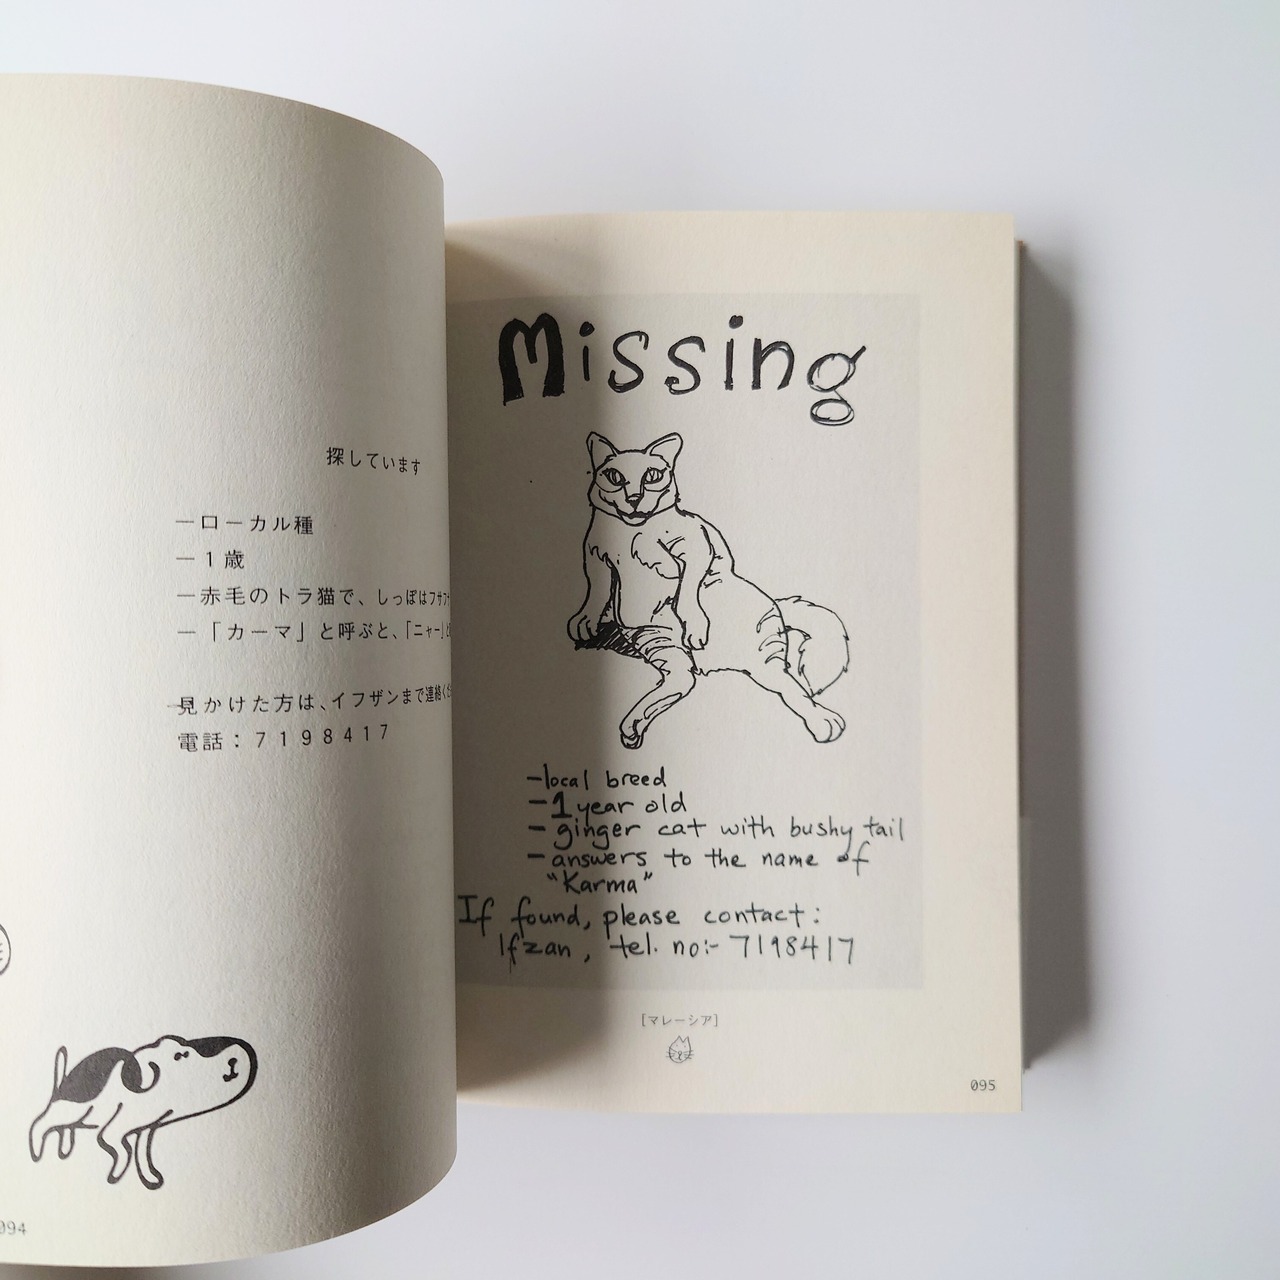 探しています
—ローカル種
—1歳
—赤毛のトラ猫で、しっぽはフサフサ
—「カーマ」と呼ぶと、「ニャー」と
見かけた方は、イフザンまで連絡くだ
電話：7198417
094
Missing
-local breed
-1 year old
- ginger cat with bushy tail
- answers to the name of
"Karma"
If found, please contact:
Ifzan, tel. no:- 7198417
[マレーシア]
095